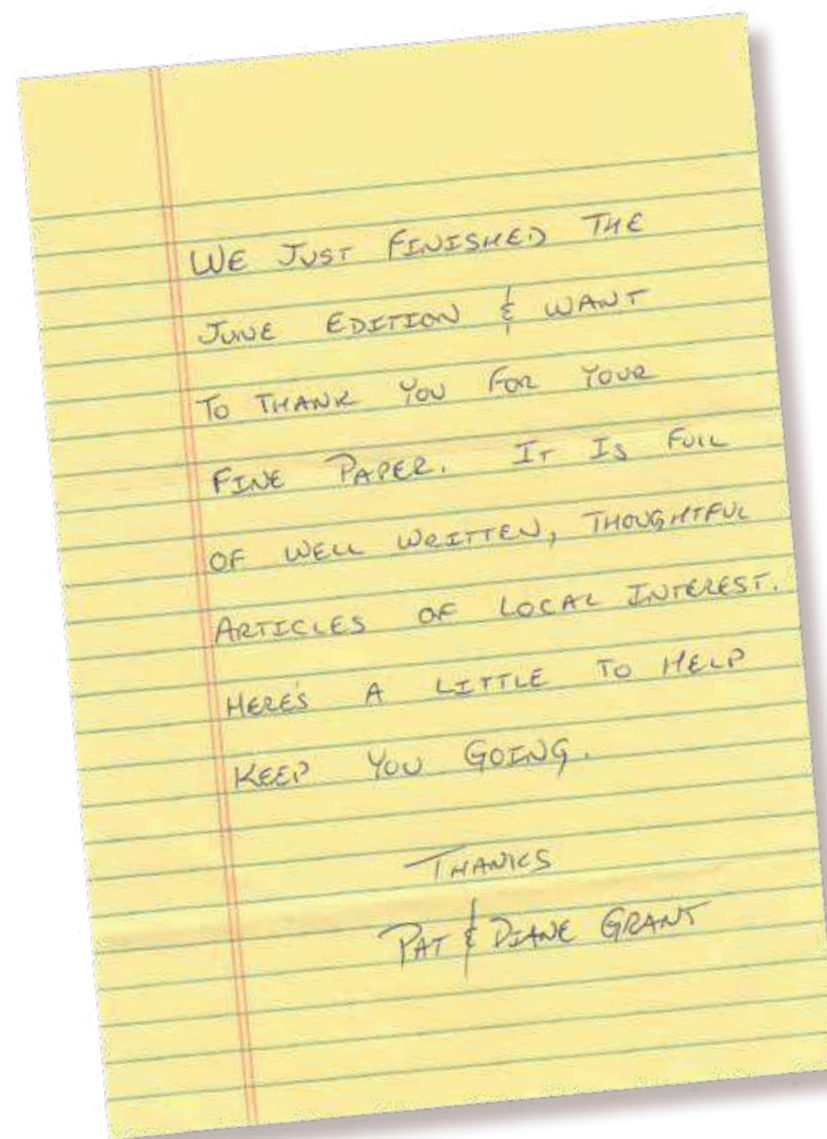 WE JUST FINISHED THE
JUNE EDITION & WANT
TO THANK YOU FOR YOUR
FINE PAPER. IT IS FULL
OF WELL WRITTEN, THOUGHTFUL
ARTICLES OF LOCAL INTEREST.
HERE'S A LITTLE TO HELP
KEEP YOU GOING.
THANKS
PAT & DIANE GRANT